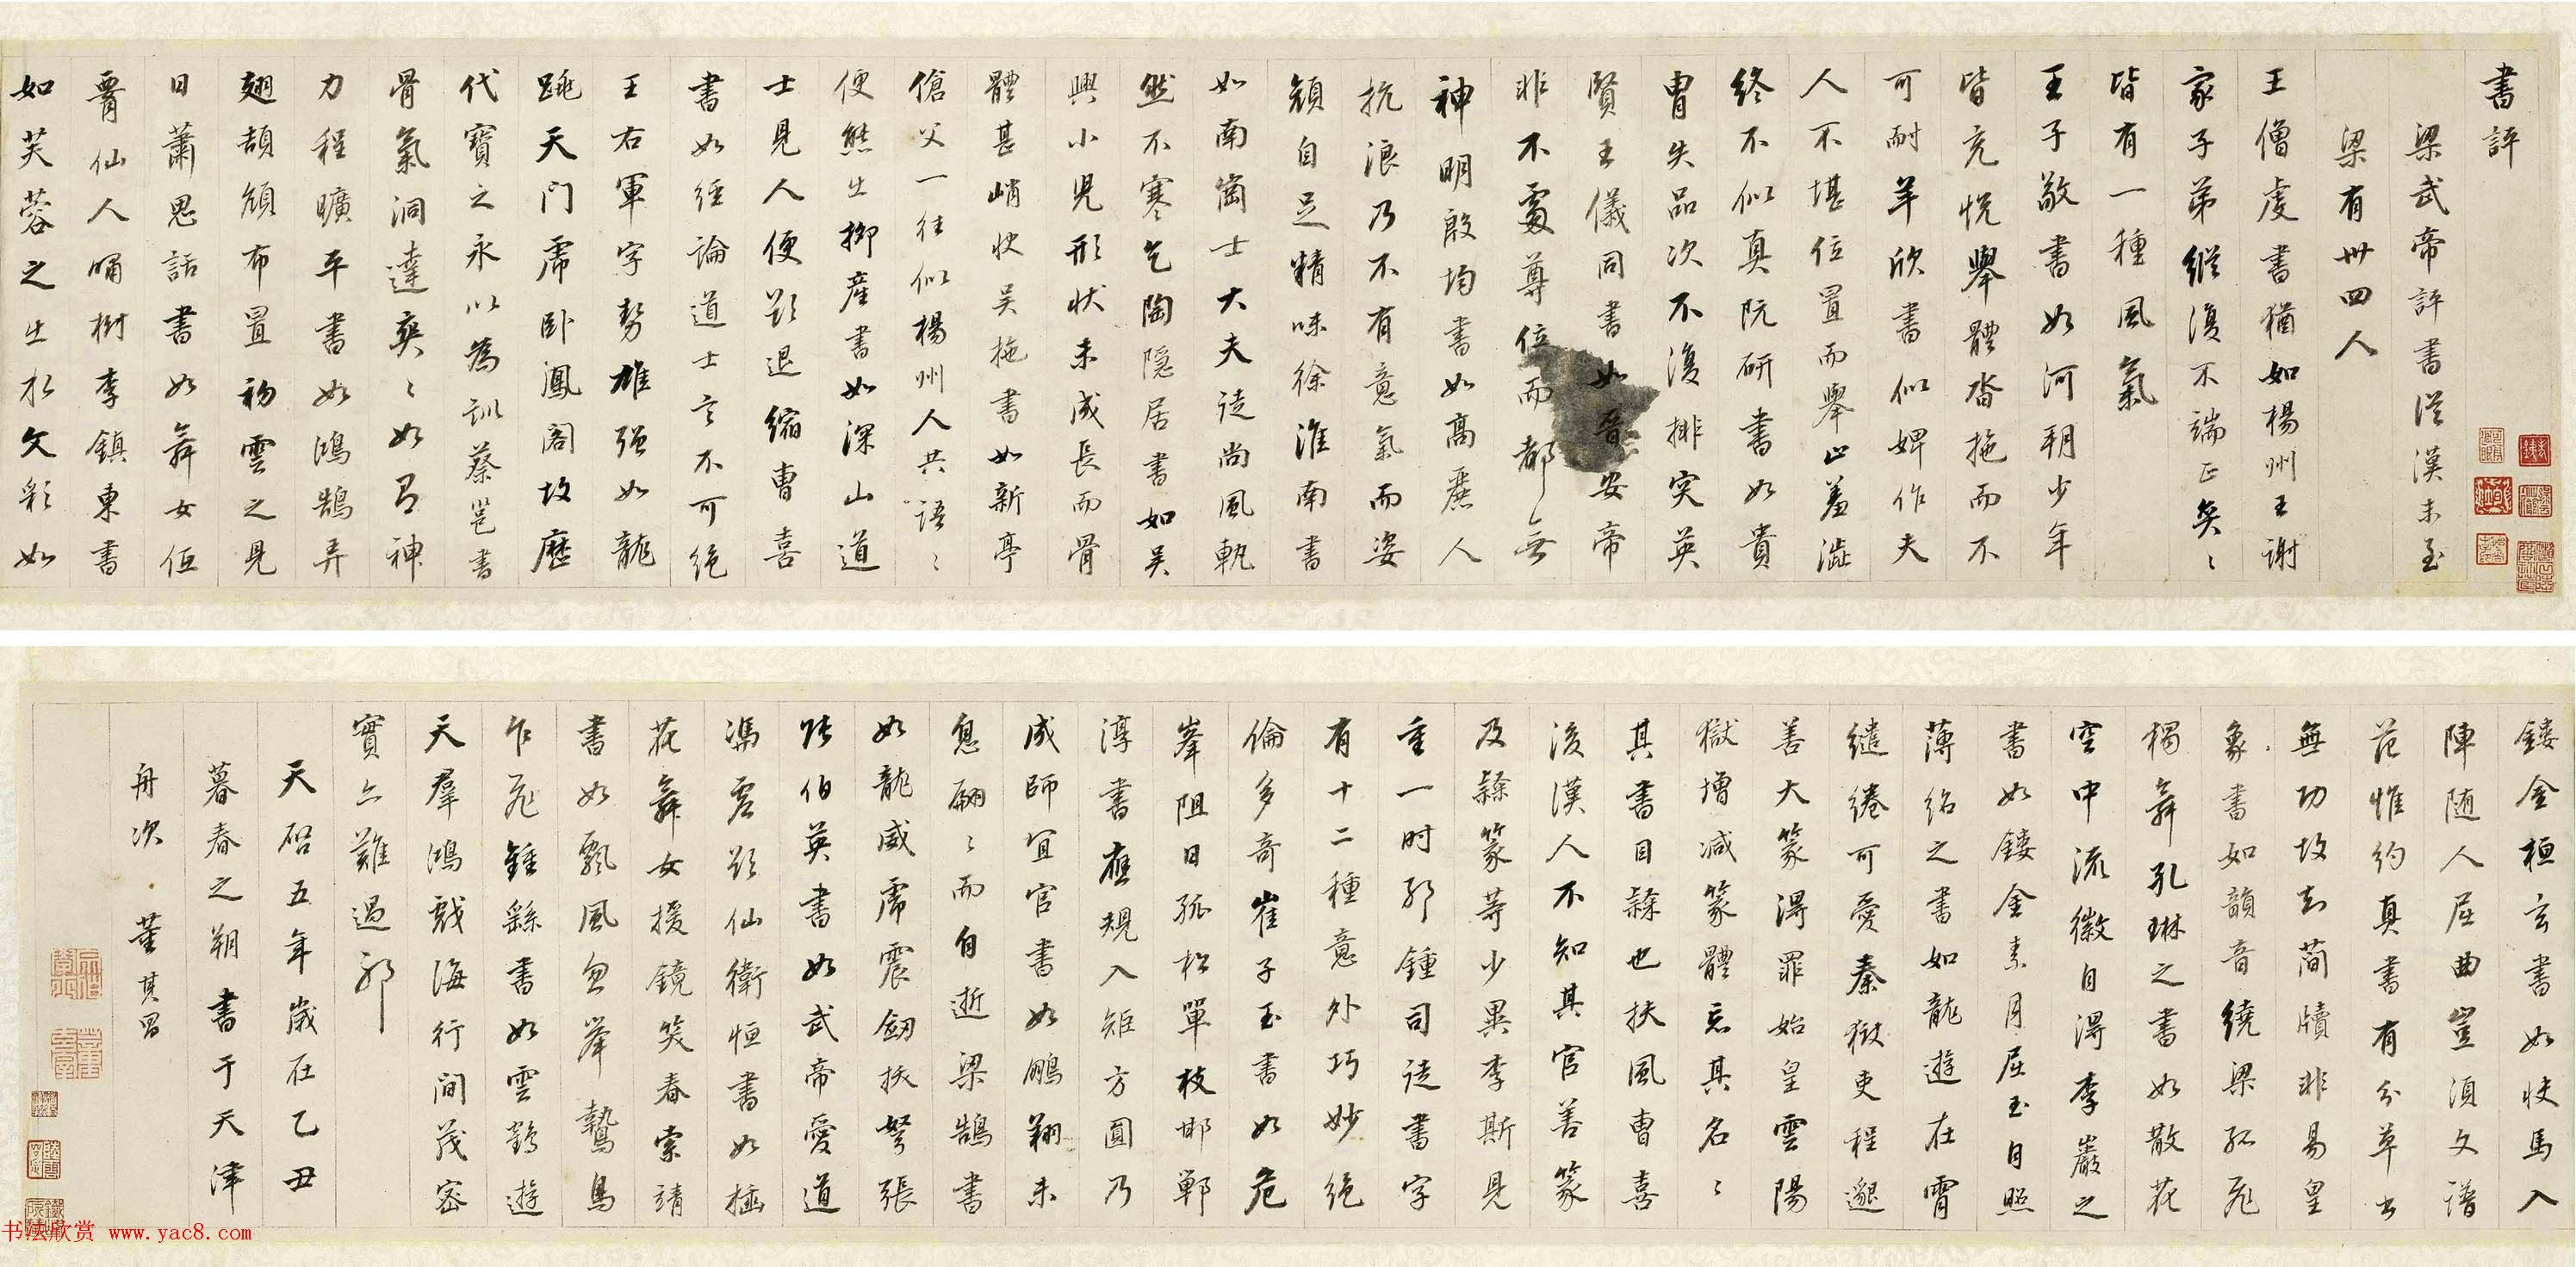 書評
梁武帝評書從漢末至
梁有卅四人
王僧虔書猶如楊州王謝
家子弟縱復不端正奕〻
皆有一種風氣
王子敬書如河朔少年
皆充悅舉體沓拖而不
可耐羊欣書似婢作夫
人不堪位置而舉止羞澁
終不似真阮研書如貴
胄失品次不復排突英
賢王儀同書如晉安帝
非不處尊位而都無
神明殷均書如高麗人
抗浪乃不有意氣而姿
顏自足精味徐淮南書
如南崗士大夫徒尚風軌
然不寒乞陶隱居書如吳
興小兒形狀未成長而骨
體甚峭快吳拖書如新亭
傖父一往似楊州人共語〻
便態出柳產書如深山道
士見人便欲退縮曹喜
書如經論道士言不可絕
王右軍字勢雄强如龍
跳天門虎卧鳳閣故歷
代寶之永以為訓蔡邕書
骨氣洞達爽〻如有神
力程曠平書如鴻鵠弄
翅頡頏布置初雲之見
日蕭思話書如舞女低
腰仙人嘯樹李鎮東書
如芙蓉之出水文彩如
鏤金桓玄書如快馬入
陣隨人屈曲豈須文譜
范惟約真書有分草書
無功故知簡牘非易皇
象書如韻音繞梁孤飛
獨舞孔琳之書如散花
空中流徽自得李巖之
書如鏤金素月屈玉自照
薄紹之書如龍遊在霄
繾綣可愛秦獄吏程邈
善大篆得罪始皇雲陽
獄增減篆體忘其名〻
其書曰隸也扶風曹喜
後漢人不知其官善篆
及隸篆等少異李斯見
重一时耶鍾司徒書字
有十二種意外巧妙絕
倫多奇崔子玉書如危
峯阻日孤松單枝邯鄲
淳書應規入矩方圓乃
成師宜官書如鵬翔未
息翩〻而自逝梁鵠書
如龍威虎震劒拔弩張
張伯英書如武帝愛道
馮虛欲仙衛恒書如插
花舞女援鏡笑春索靖
書如飄風忽舉鷙鳥
乍飛鍾繇書如雲鶴遊
天羣鴻戲海行間茂密
實亦難過耶
天啓五年歲在乙丑
暮春之朔書于天津
舟次 董其昌
书法欣赏 www.yac8.com